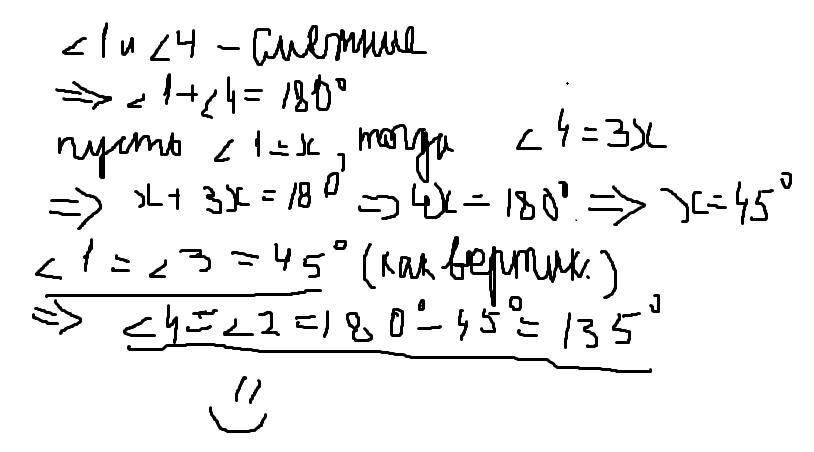 ∠1 и ∠4 – смежные
⇒ ∠1+∠4=180°
пусть ∠1=x, тогда ∠4=3x
⇒ x+3x=180 ⇒ 4x=180° ⇒ x=45°
∠1=∠3=45° (как вертик.)
⇒ ∠4=∠2=180°-45°=135°